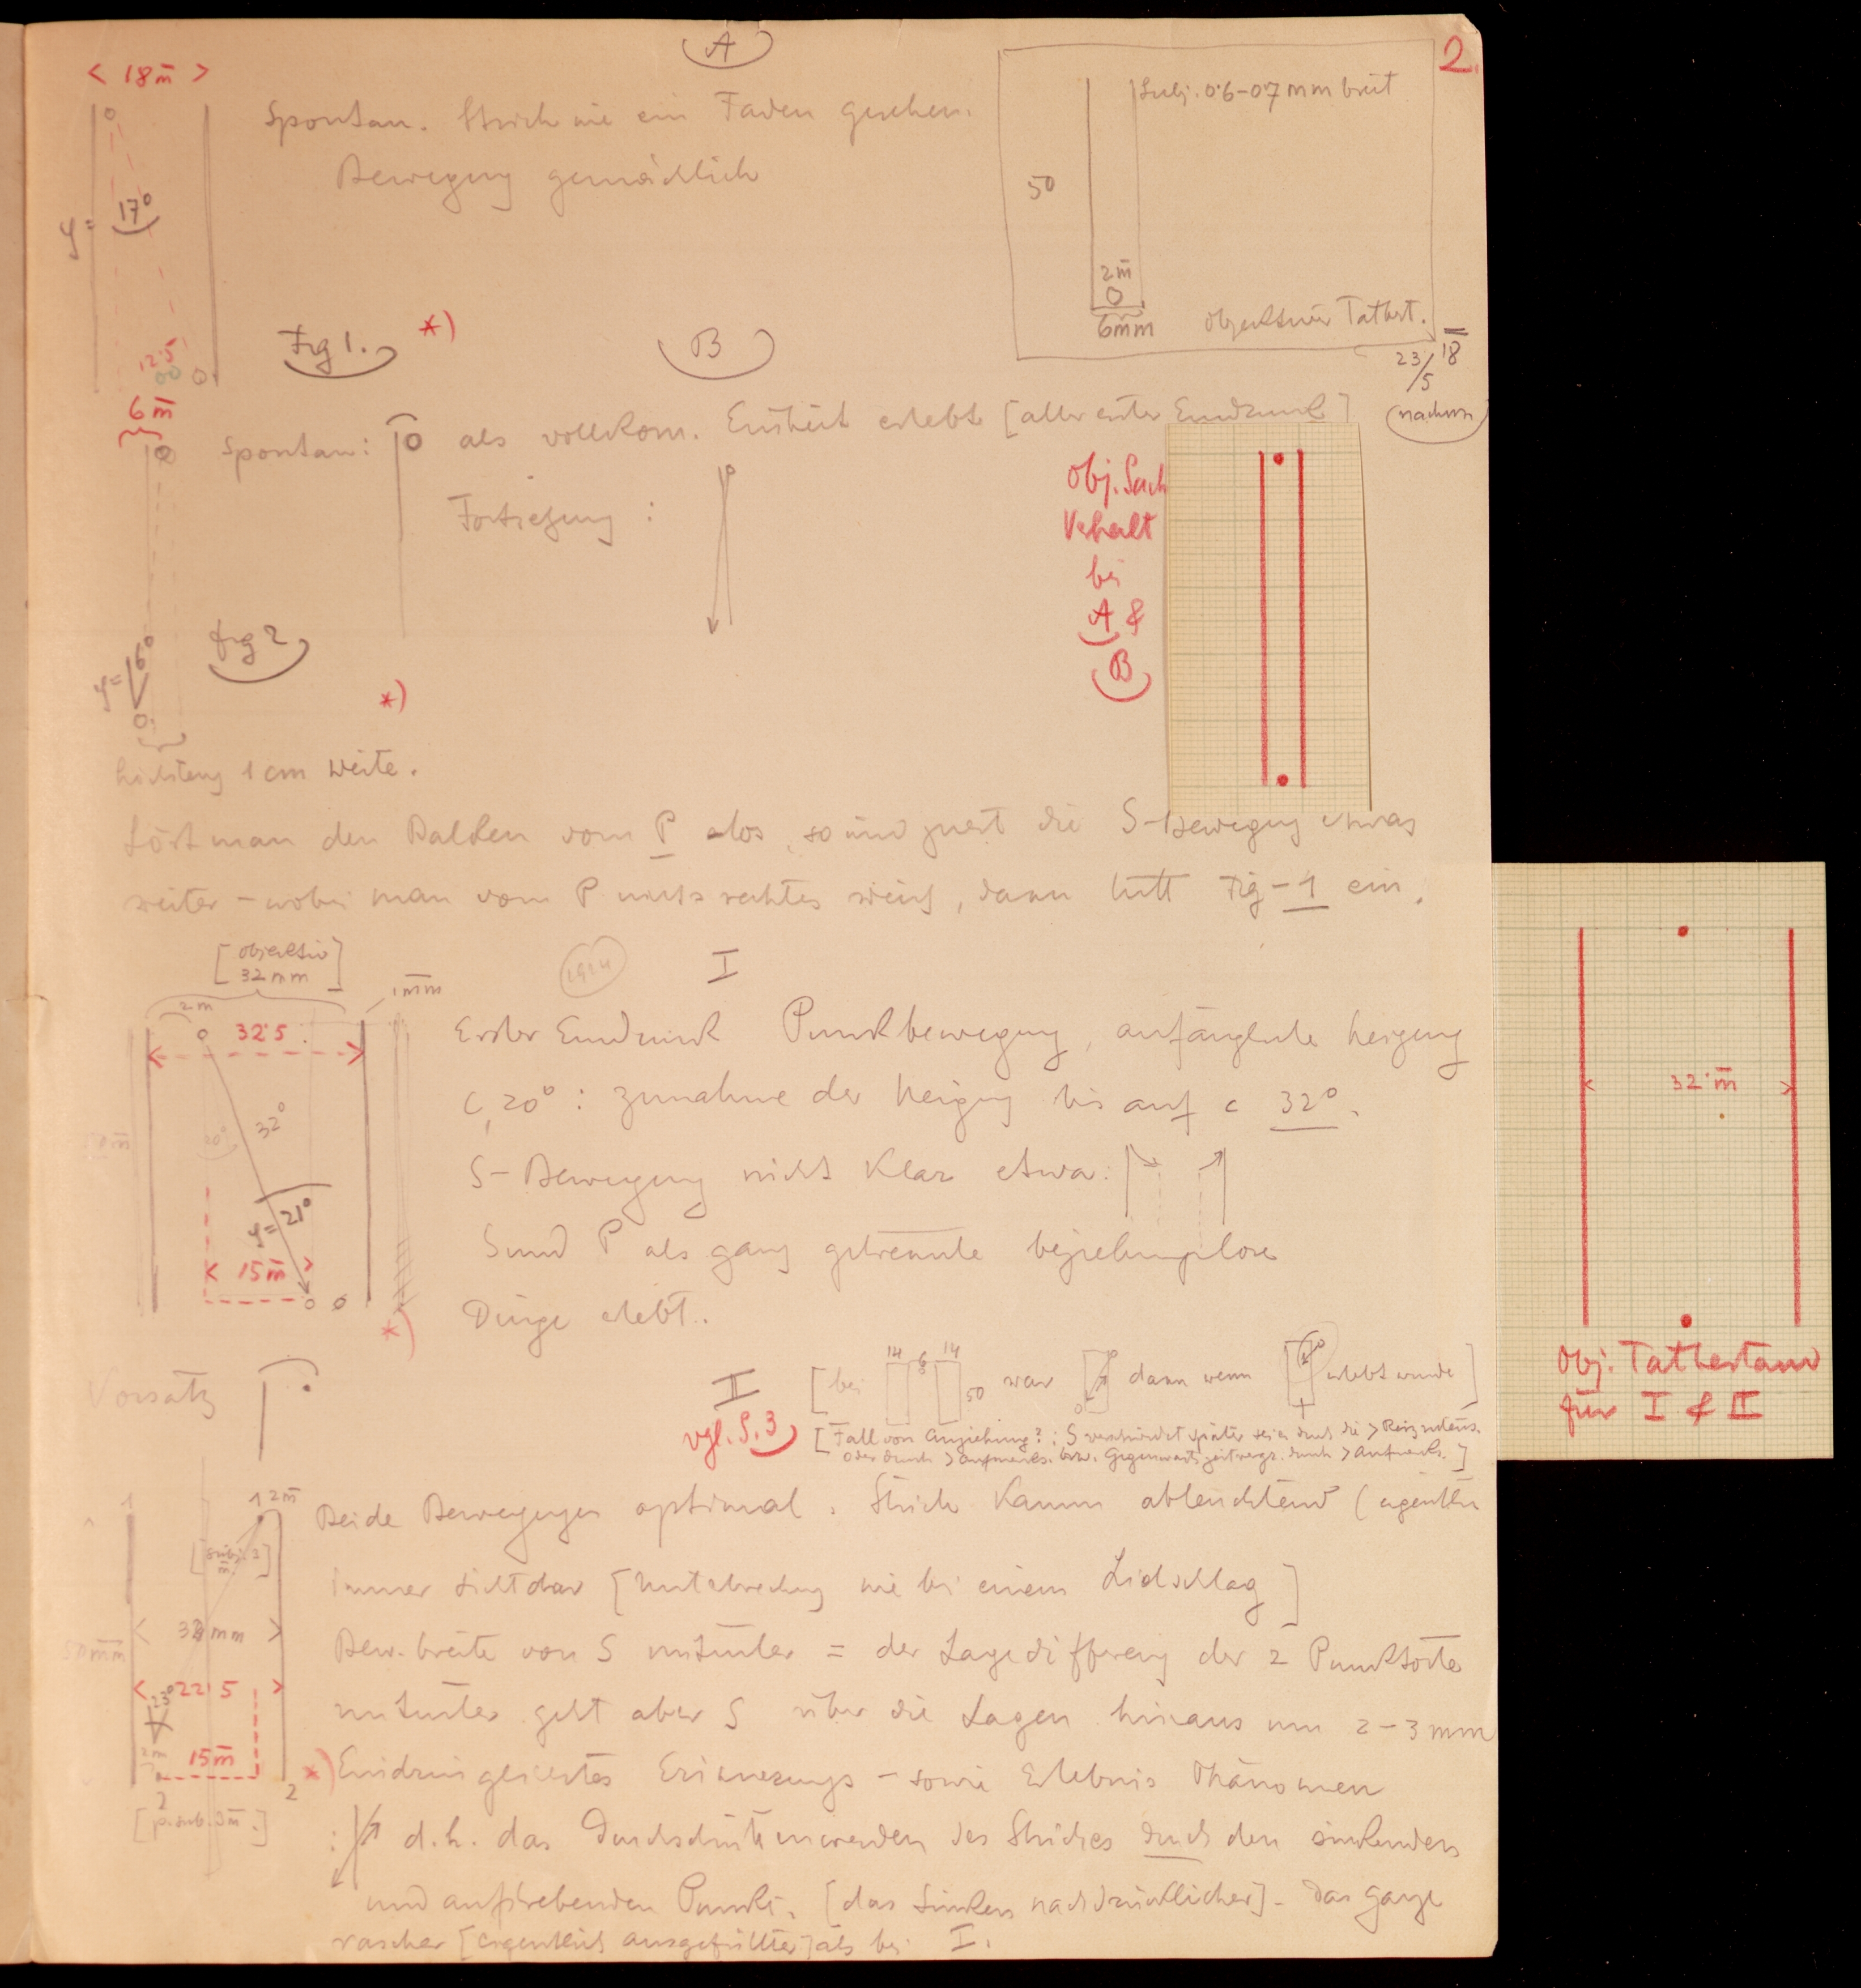 2.
A
< 18m̄ >
Spontan. Strich wie ein Faden gesehen.
Bewegung gemächlich
φ = 17°
12·5
Fig 1. *)
Subj. 0·6-0·7 mm breit
50
2m̄
6mm
Objektiver Tatbest.
23/5 18
(nachm)
B
6m̄
Spontan: als vollkom. Einheit erlebt [aller erster Eindruck]
Fortsetzung :
Obj. Sach
Verhalt
bei
A &
B
φ = 16°
Fig 2
*)
höchstens 1 cm Weite.
Löst man den Balken vom P los, so wird zuerst die S-Bewegung etwas
weiter – wobei man vom P nichts rechtes weiß, dann tritt Fig-1 ein.
[objektiv
32 mm]
1914
I
2m
1m̄m
32·5
20°
32°
φ = 21°
< 15m̄ >
*)
Erster Eindruck Punktbewegung, anfängliche Neigung
c, 20° : Zunahme der Neigung bis auf c 32°.
S-Bewegung nicht klar etwa:
S und P als ganz getrennte beziehungslose
Dinge erlebt.
< 32·m̄ >
Obj. Tatbestand
für I & II
Vorsatz
II
vgl. S. 3
[bei 14 6 14 50 war dann wenn erlebt wurde]
[Fall von Anziehung? : S verschwindet später sei es durch die > Reizintens.
oder durch > Aufmerks. bzw. Gegenwartszeitvergr. durch > Aufmerks.]
1
1 2m̄
[subj. 3
m̄]
< mm >
< 22·5 >
23°
15m̄
2
2
[p. sub. 3m̄.]
Beide Bewegungen optimal. Strich kaum ableuchtend (eigentlich
immer sichtbar [Unterbrechung wie bei einem Lidschlag]
Bew. breite von S mitunter = der Lagedifferenz der 2 Punktorte
mitunter geht aber S über die Lagen hinaus um 2-3 mm
*) Eindringlichstes Erinnerungs- sowie Erlebnis Phänomen
: d.h. das Durchschnittenwerden des Striches durch den sinkenden
und aufstrebenden Punkt. [das Sinken nachdrücklicher]. Das Ganze
rascher [eigentlich ausgefüllter] als bei I.